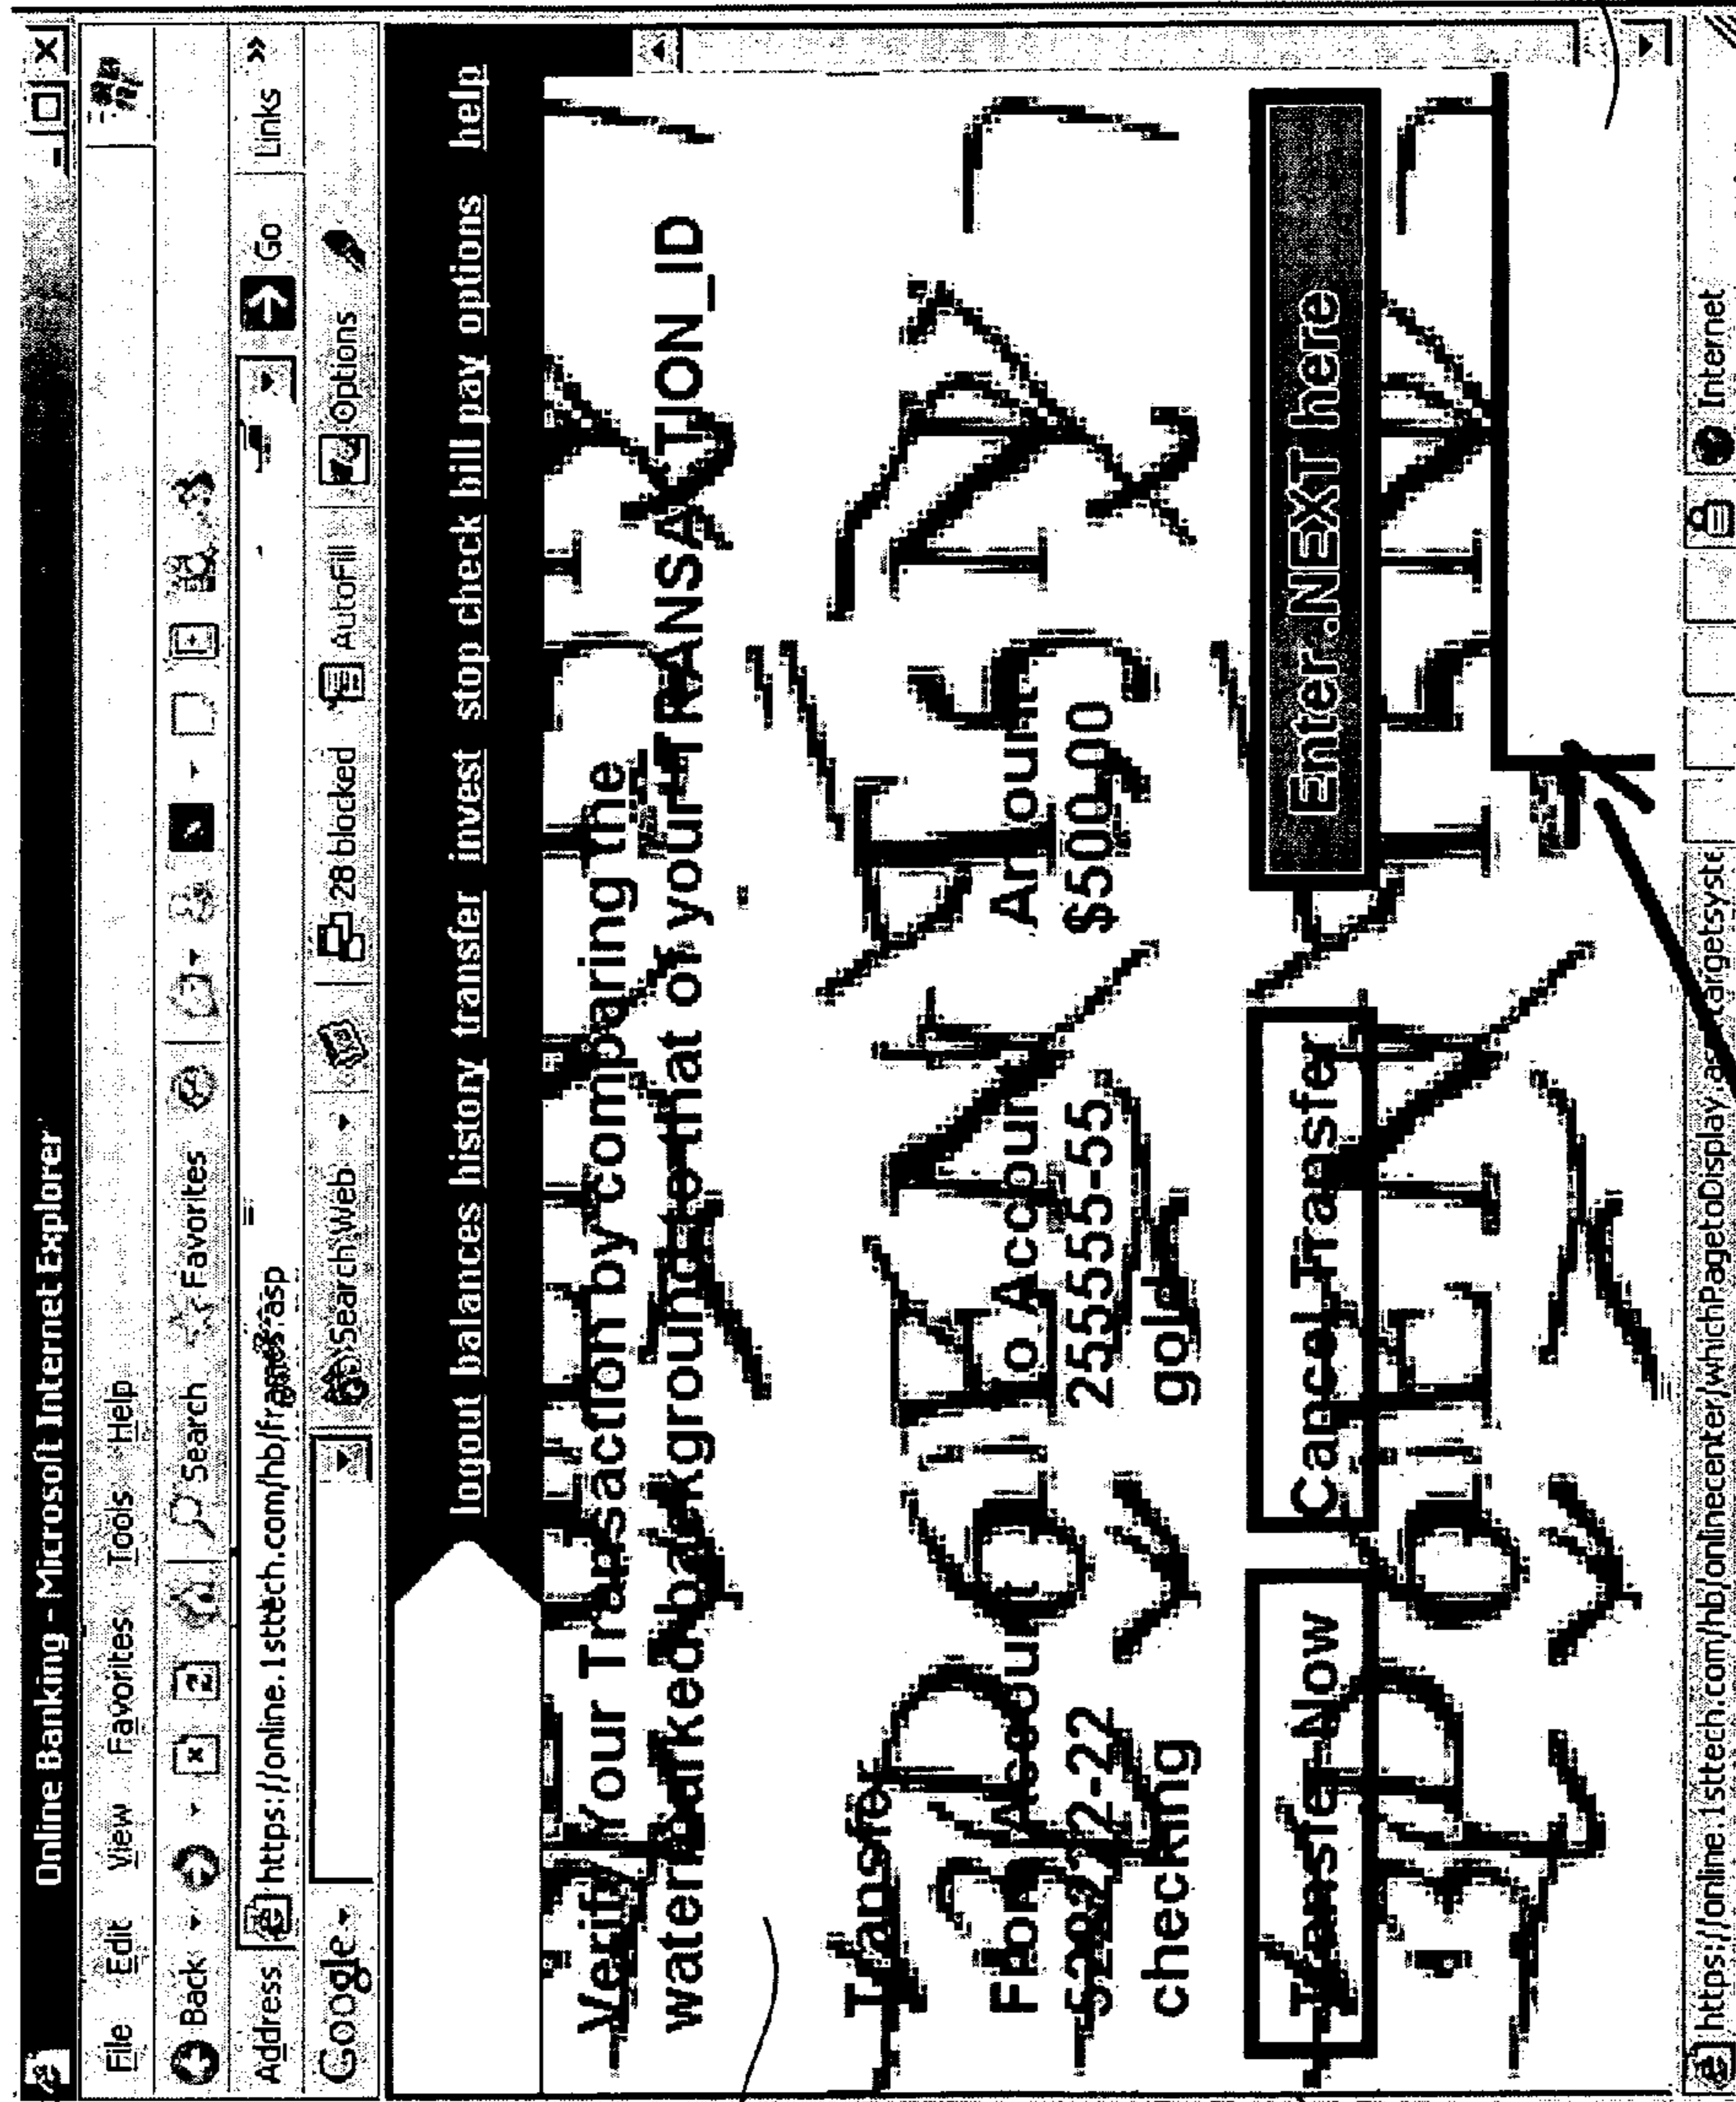 Online Banking - Microsoft Internet Explorer
File Edit View Favorites Tools Help
Back Search Favorites
Address https://online.1sttech.com/hb/frames.asp Go Links »
Google Search Web 28 blocked AutoFill Options
logout balances history transfer invest stop check bill pay options help
Verify Your Transaction by comparing the
watermarked background to that of your TRANSAKTION_ID
Transfer
From Account To Account Amount
522222-22 255555-55 $500.00
checking gold
Transfer Now Cancel Transfer Enter .NEXT here
https://online.1sttech.com/hb/onlinecenter/whichPagetoDisplay.as Internet